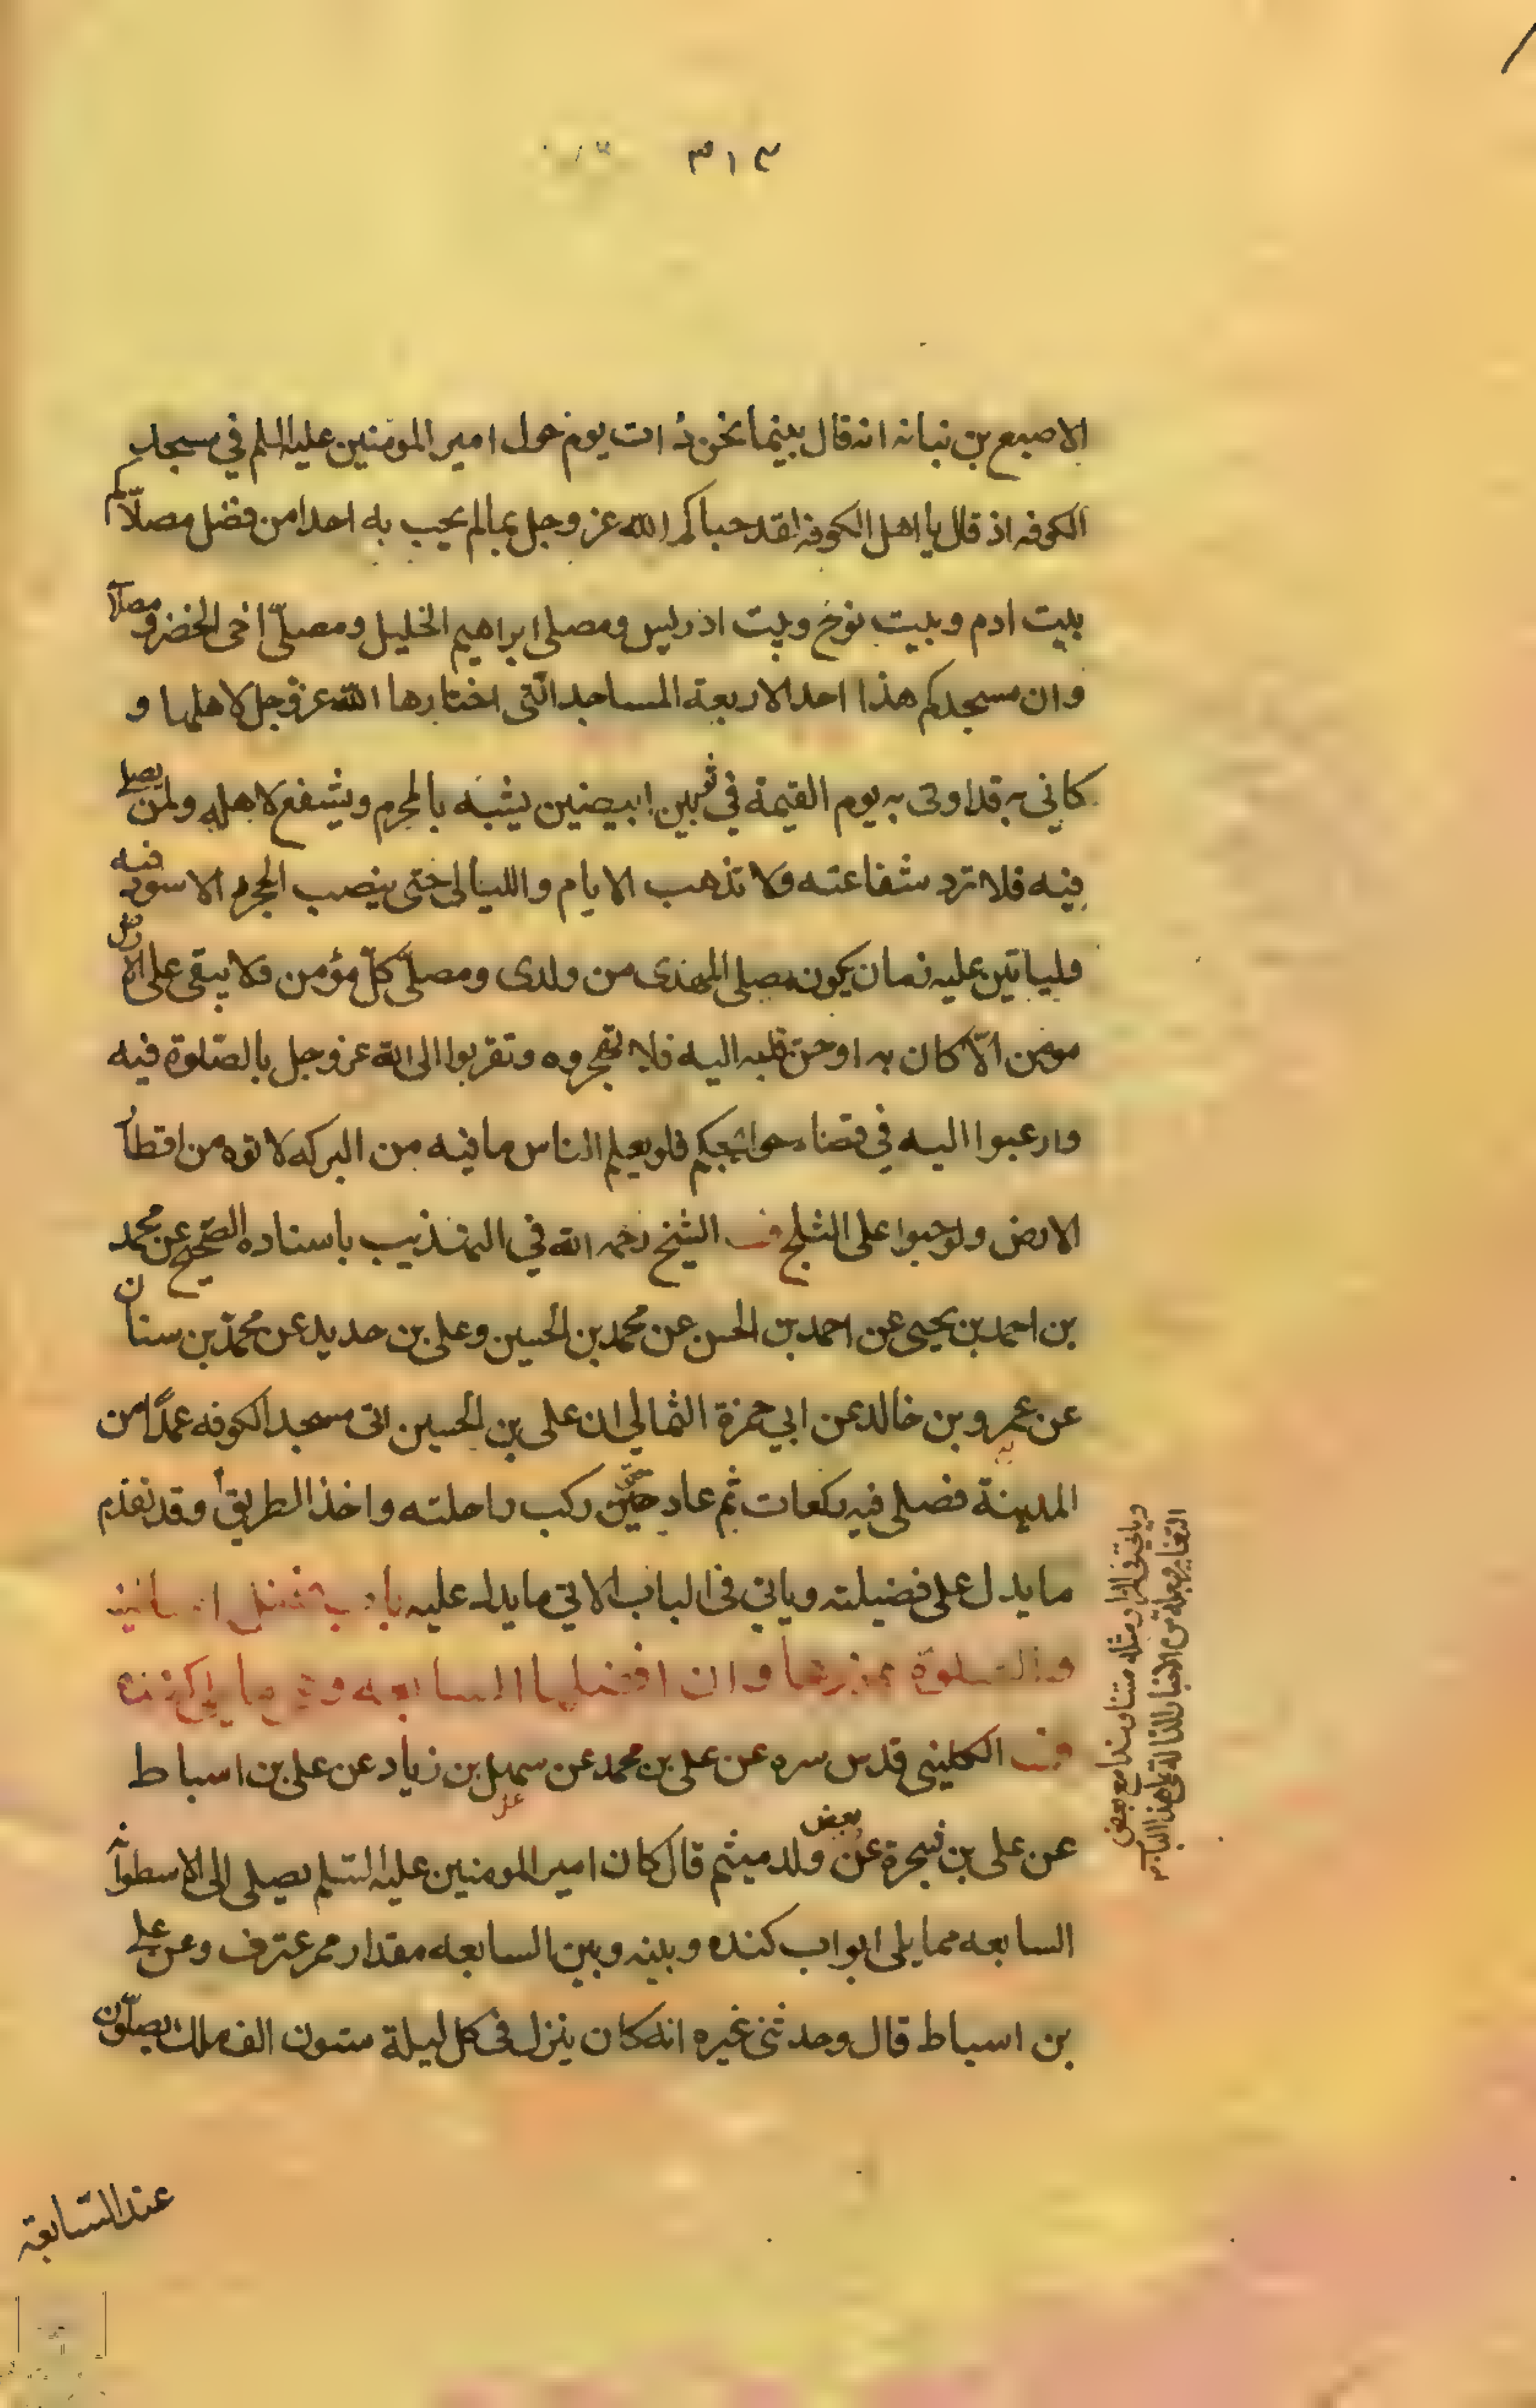 ٣١٣
الاصبع بن نباته انه قال بينما نحن ذات يوم حول امير المومنين عليه السلم في مسجد
الكوفه اذ قال يا اهل الكوفه لقد حباكم الله عز وجل بما لم يحب به احدا من فضل مصلّاكم
بيت ادم وبيت نوح وبيت ادريس ومصلى ابراهيم الخليل ومصلّى اخى الخضر ومصلّا
وان مسجدكم هذا احد الاربعة المساجد الّتى اختارها الله عز وجل لاهلها و
كانى به قد اوتى به يوم القيمة في ثوبين ابيضين يشبه بالمحرم ويشفع لاهله ولمن يصلى
فيه فلا ترد شفاعته ولا تذهب الايام والليالى حتى ينصب الحجر الاسود فيه
ولياتين عليه زمان يكون مصلى المهدى من ولدى ومصلّى كلّ مؤمن ولا يبقى على الارض
مومن الّا كان به او حنّ قلبه اليه فلا تهجروه وتقربوا الى الله عز وجل بالصّلوة فيه
وارغبوا اليه في قضاء حوائجكم فلو يعلم الناس ما فيه من البركه لاتوه من اقطا
الارض ولو حبوا على الثلج الشيخ رحمه الله في التهذيب باسناده الصّحيح عن محمد
بن احمد بن يحيى عن احمد بن الحسن عن محمد بن الحسين وعلى بن حديد عن محمّد بن سنان
عن عمرو بن خالد عن ابي حمزة الثمالي ان على بن الحسين اتى مسجد الكوفه عمدًا من
المدينة فصلى فيه ركعات ثم عاد حتى ركب راحلته واخذ الطريق وقد تقدم
ما يدل على فضيلته وياتى فى الباب الاتي ما يدل عليه باب
والصلوة عندها وان افضلها السابعه وهى ما يلى كنده
الكلينى قدس سره عن على بن محمد عن سهل بن زياد عن على بن اسباط
عن على بن شجرة عن بعض ولد ميثم قال كان امير المومنين عليه السّلم يصلى الى الاسطوانه
السابعه مما يلى ابواب كنده وبينه وبين السابعه مقدار ممر عنز وعن على
بن اسباط قال وحدثنى غيره انه كان ينزل فى كل ليلة ستون الف ملك يصلّون
عند السّابعة